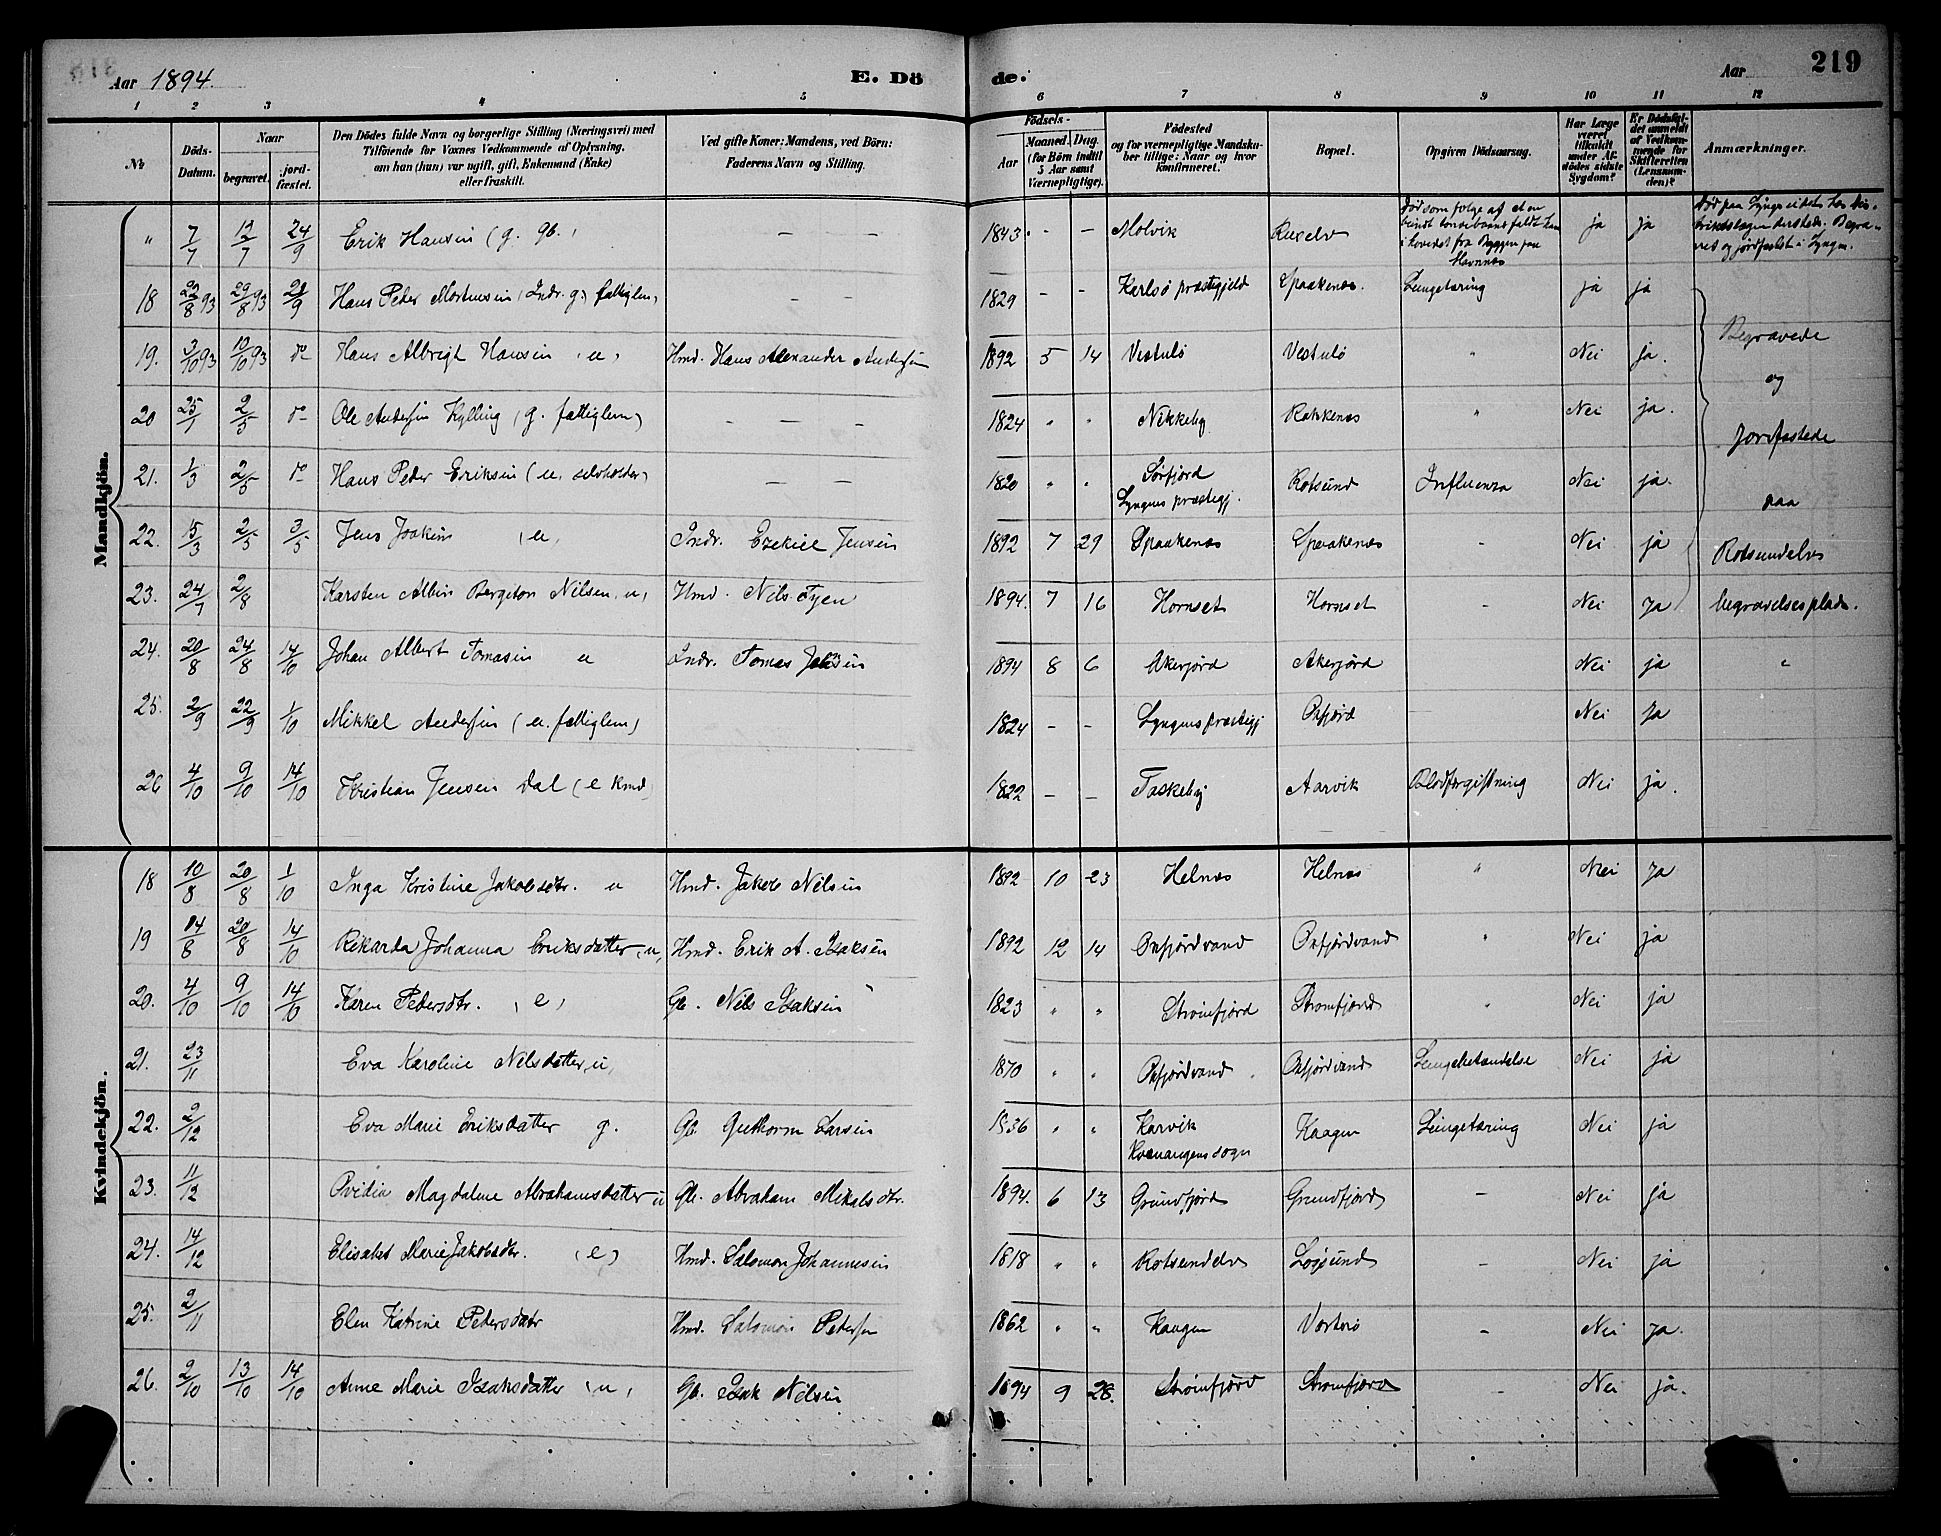 Aar 1894. E. Dö de. Aar 219
1 2 3 4 5 6 7 8 9 10 11 12
Mandkjön.
Kvindekjön.
№
Döds-Datum.
Naar
begravet.
jordfæstet.
Den Dödes fulde Navn og borgerlige Stilling (Næringsvei) med
Tilföiende for Voxnes Vedkommende af Oplysning,
om han (hun) var ugift, gift, Enkemand (Enke)
eller fraskilt.
Ved gifte Koner: Mandens, ved Börn:
Faderens Navn og Stilling.
Födsels-
Aar
Maaned. Dag.
(for Börn indtil
5 Aar samt
Værnepligtige).
Födested
og for værnepligtige Mandskaber tillige: Naar og hvor
konfirmeret.
Bopæl.
Opgiven Dödsaarsag.
Har Læge
været
tilkaldt
under Afdödes sidste
Sygdom?
Er Dödsfaldet anmeldt
af Vedkommende for
Skifteretten
(Lensmanden)?
Anmærkninger.
" 7/7 12/7 24/9 Erik Hansen (g. gb.) — — 1843 - - Molvik
Død som følge af at en
i hovedet fra Byggen paa
Havnnes
ja ja
Død paa Lyngseidet hos
og jordfæstet i Lyngen.
18 22/8 93 29/8 93 28/9 Hans Peder Mortensen (Indr. g. fattiglem) — — 1829 - - Karlsö præstegjeld Spaakenes. Lungetæring ja ja
19. 3/10 93 10/10 93 do Hans Albrigt Hansen (u) Hmd. Hans Alexander Andersen 1892 5 14 Vestulö Vestulö " Nei ja.
20 25/1 2/5 do Ole Andersen Kylling (g. fattiglem) — — — 1824 " " Nikkeby Rakkenes " Nei ja.
21. 1/3 2/5 do Hans Peder Eriksen (u. selvholder) — — 1820 " " Sørfjord
Lyngens præstegj. Rotsund Influenza Nei ja.
22. 15/3 2/5 3/5 Jens Joakim (u) Indr. Ezekiel Jensen 1892 7 29 Spaakenes Spaakenes - Nei ja
23. 24/7 2/8 Karsten Albin Bergiton Nilsen (u) Hmd. Nils Fyen 1894. 7 16 Hornset Hornset - Nei Ja
Begravede
og
Jordfæstede
paa
Rotsundelvs
begravelsesplads.
24. 20/8 24/8 14/10 Johan Albert Tomasen u Indr. Tomas Johnsen 1894 8 6 Akerjord Akerjord Nei ja "
25. 2/9 22/9 1/10 Mikkel Andersen (u. fattiglem) 1824 — - Lyngens præstegj Oxfjord Nei Ja
26 4/10 9/10 14/10 Kristian Jensen Dal (e kmd) 1822 — — Taskeby Aarvik Blodforgiftning Nei ja.
18 10/8 20/8 1/10 Inga Kristine Jakobsdtr. u Hmd. Jakob Nilsen 1892 10 23 Helnes Helnes " Nei Ja
19 14/8 20/8 14/10 Rikarda Johanna Eriksdatter (u) Hmd. Erik A. Isaksen 1892 12 14 Oxfjordvand Oxfjordvand " Nei ja
20. 4/10 9/10 14/10 Karen Petersdtr. (e) Gb. Nils Isaksen 1823 " " Strømfjord Strømfjord " Nei ja
21. 23/11 Eva Karoline Nilsdatter u, 1870 " " Oxfjordvand Oxfjordvand Lungebetændelse Nei ja
22. 2/12 Eva Marie Eriksdatter g. Gb Guttorm Larsen 1836 " " Karvik
Kvænangens sogn Kaagen Lungetæring Nei ja
23. 11/12 Ovidia Magdalene Abrahamsdatter u Gb. Abraham Mikalsdtr. 1894. 6 13 Grundfjord Grundfjord — Nei ja
24. 14/12 Elisabet Marie Jakobsdtr. (e) Hmd. Salomon Johannesen 1818 " " Rotsundelv Nei ja
25. 2/11 Elen Katrine Petersdatr Hmd. Salomon Petersen 1862 " " Kaagen Vorterö - Nei Ja.
26. 2/10 13/10 14/10 Anne Marie Isaksdatter (u) Gb. Isak Nilsen 1894 9 28. Strømfjord Strømfjord - Nei ja.